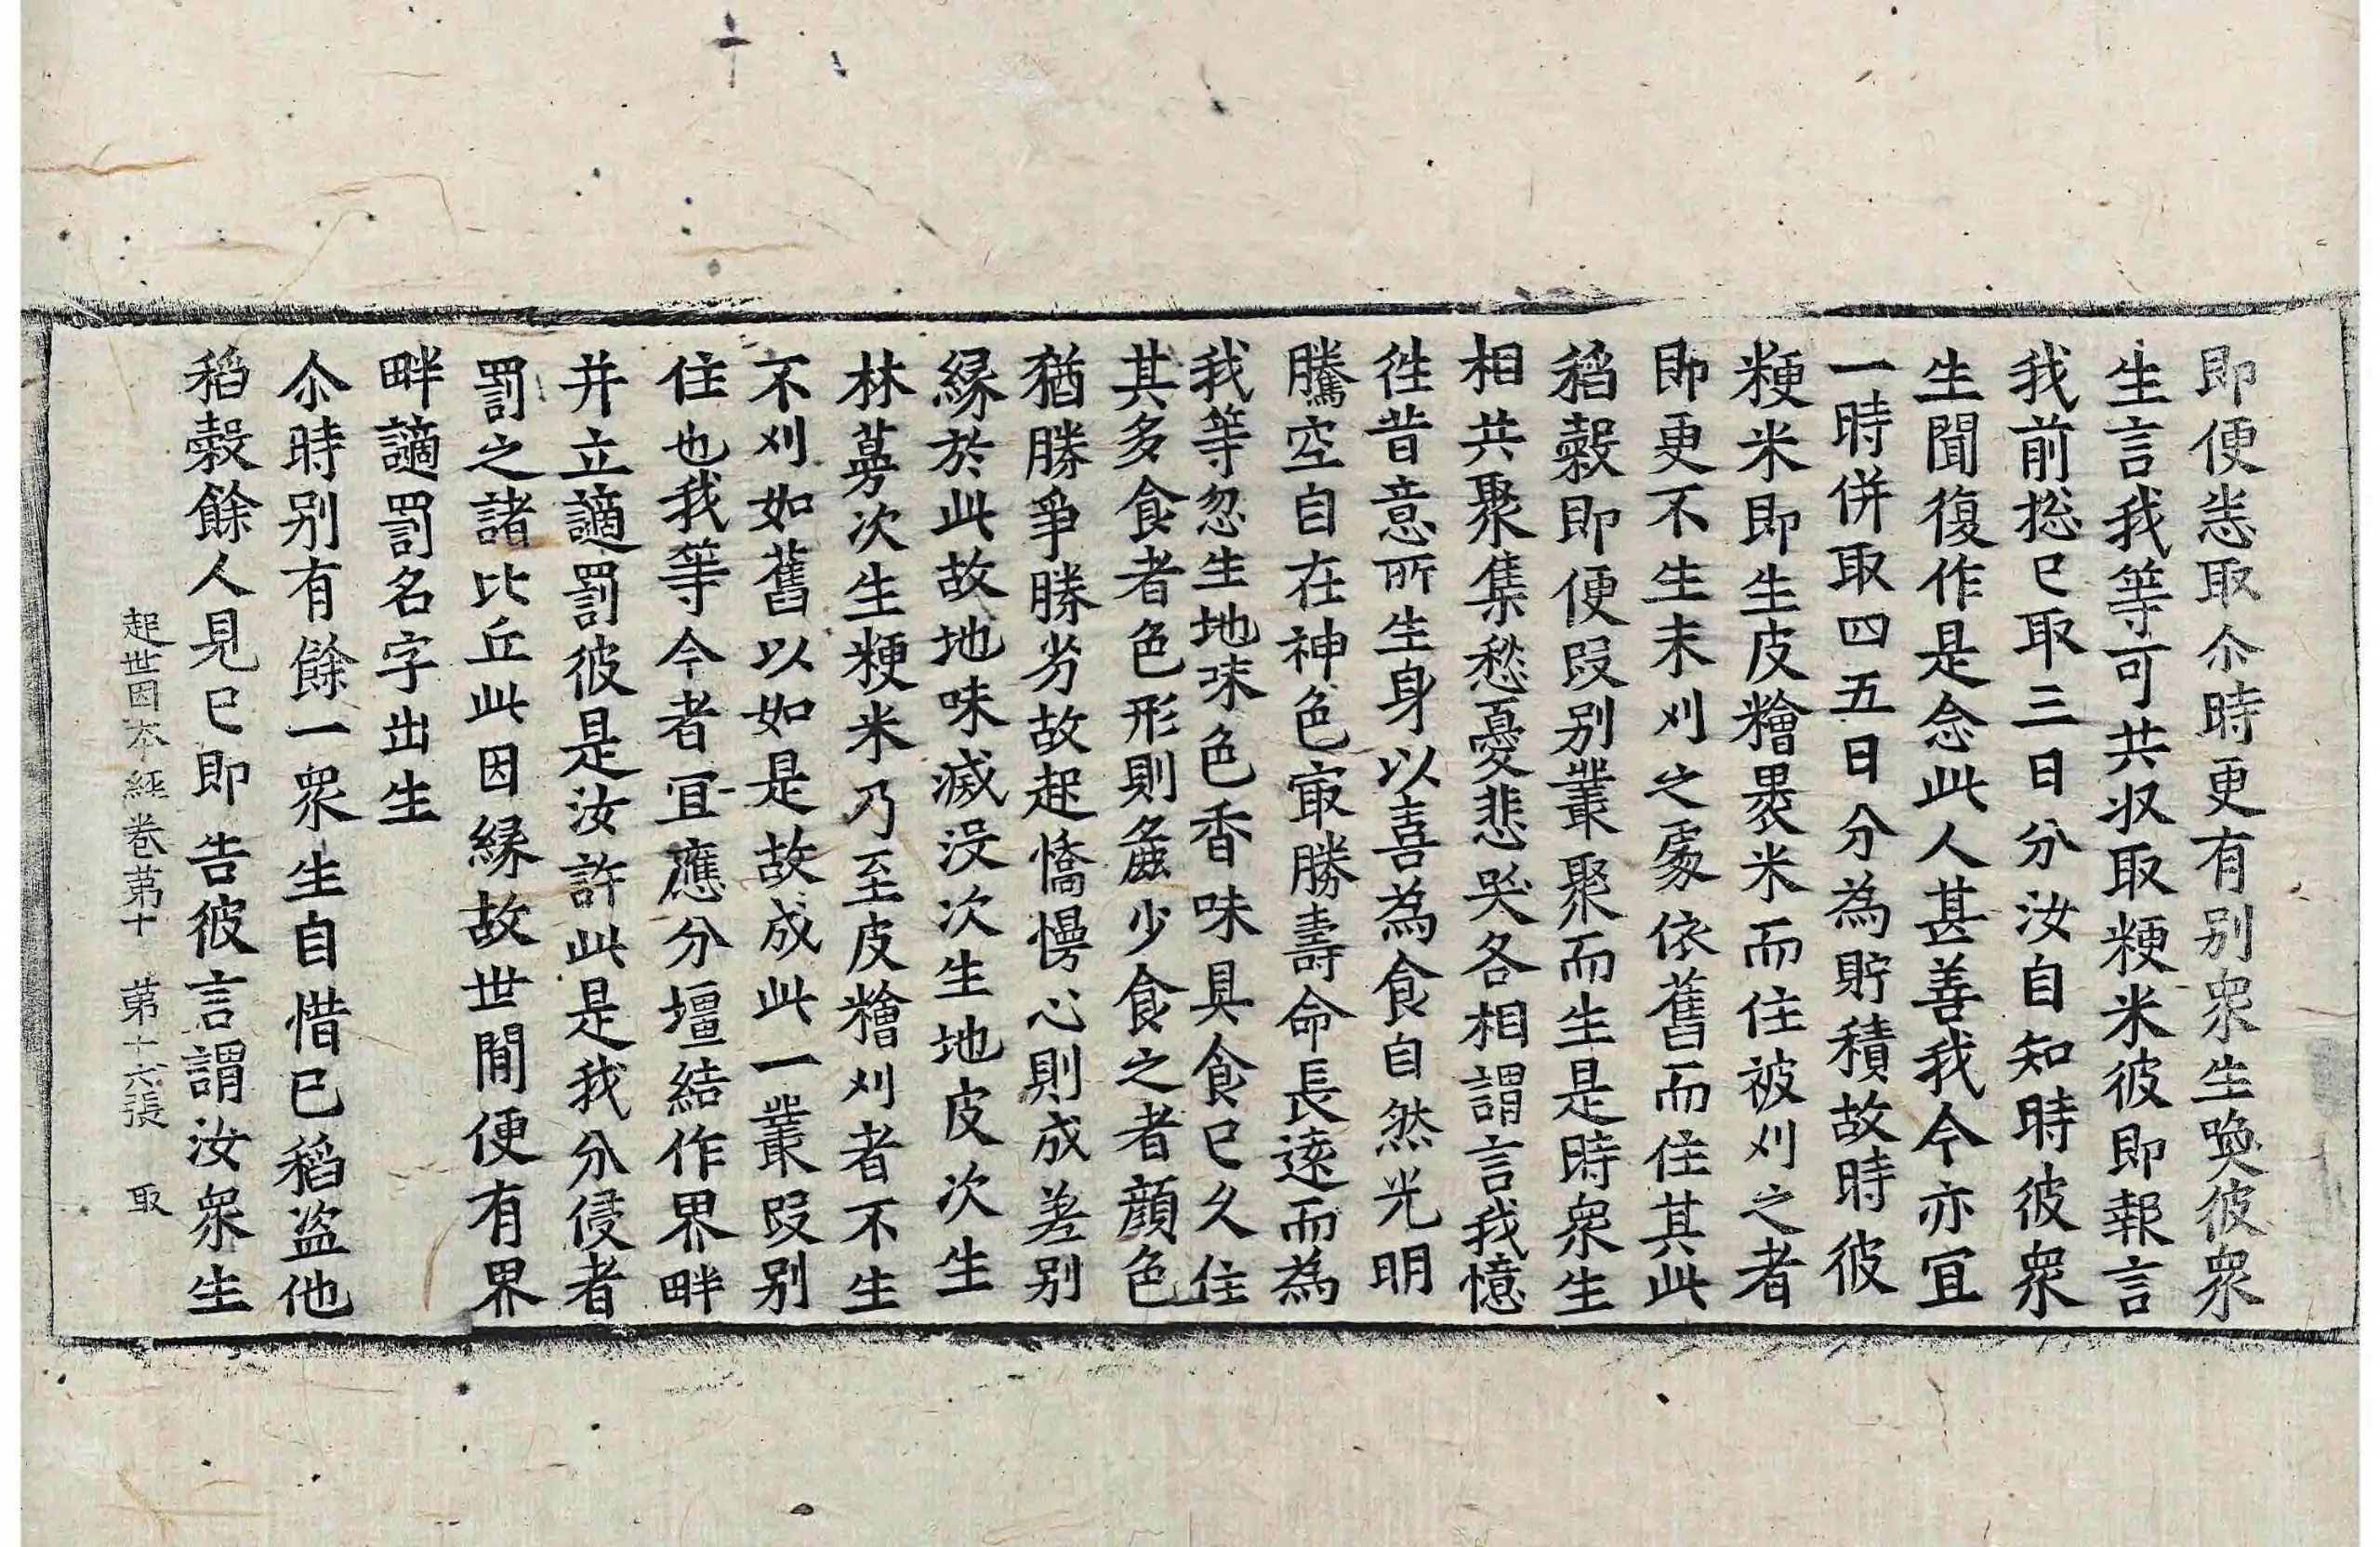 即便恙取尒時更有别衆生喚彼衆
生言我等可共收取粳米彼即報言
我前揔已取三日分汝自知時彼衆
生聞復作是念此人甚善我今亦宜
一時併取四五日分為貯積故時彼
粳米即生皮糩褁米而住被刈之者
即更不生未刈之處依舊而住其此
稻穀即便段别叢聚而生是時衆生
相共聚集愁憂悲哭各相謂言我憶
徃昔意所生身以喜為食自然光明
騰空自在神色㝡勝壽命長遠而為
我等忽生地味色香味具食已久住
其多食者色形則麁少食之者顔色
猶勝爭勝劣故起憍慢心則成差别
縁於此故地味滅没次生地皮次生
林蔓次生粳米乃至皮糩刈者不生
不刈如舊以如是故成此一叢段别
住也我等今者宜應分壃結作界畔
并立讁罰彼是汝許此是我分侵者
罰之諸比丘此因縁故世間便有界
畔讁罰名字出生
尒時别有餘一衆生自惜已稻盗他
稻穀餘人見已即告彼言謂汝衆生
起世因本經卷第十 第十六張 取